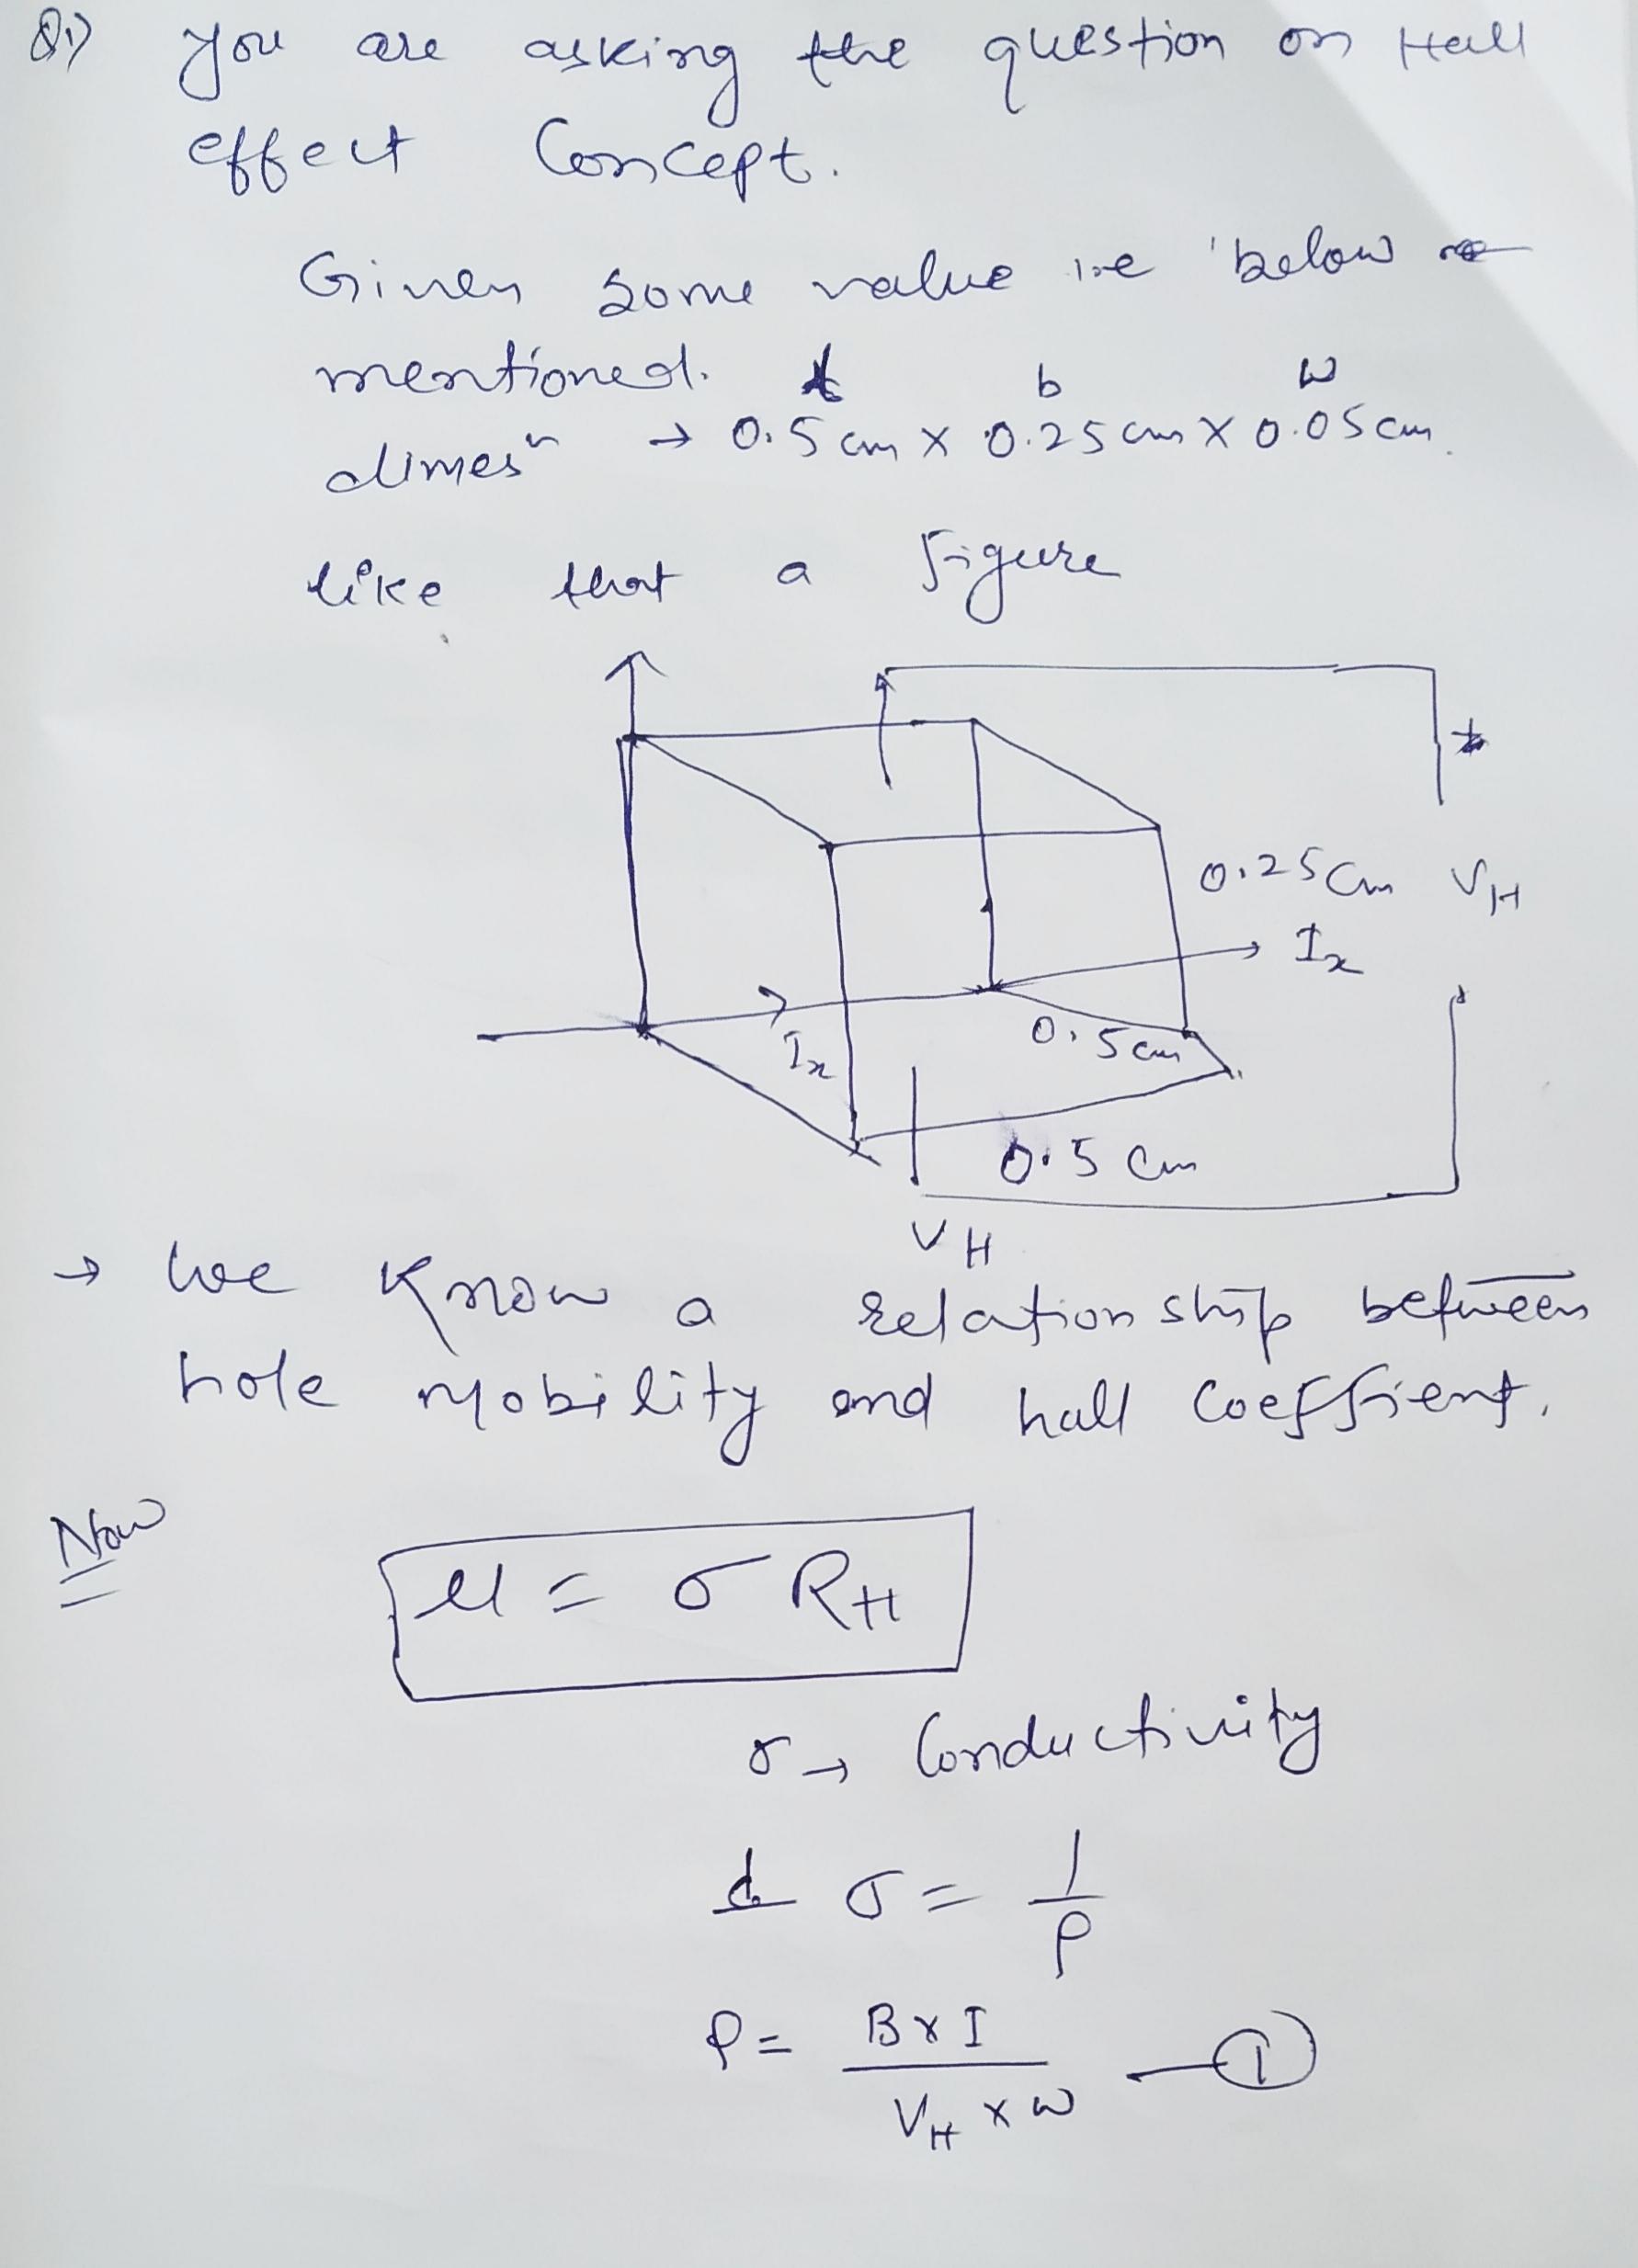 Q1) you are asking the question on Hall
effect Concept.
Given some value i.e below
mentioned.
t b w
dimesn → 0.5 cm × 0.25 cm × 0.05 cm.
like that a figure
+
0.25 cm VH
Ix
Ix
0.5 cm
0.5 cm
VH
→ We know a relationship between
hole mobility and hall Coeffient.
Now
μ = σ RH
σ → Conductivity
& σ = 1/ρ
ρ = B×I / VH × w — ①